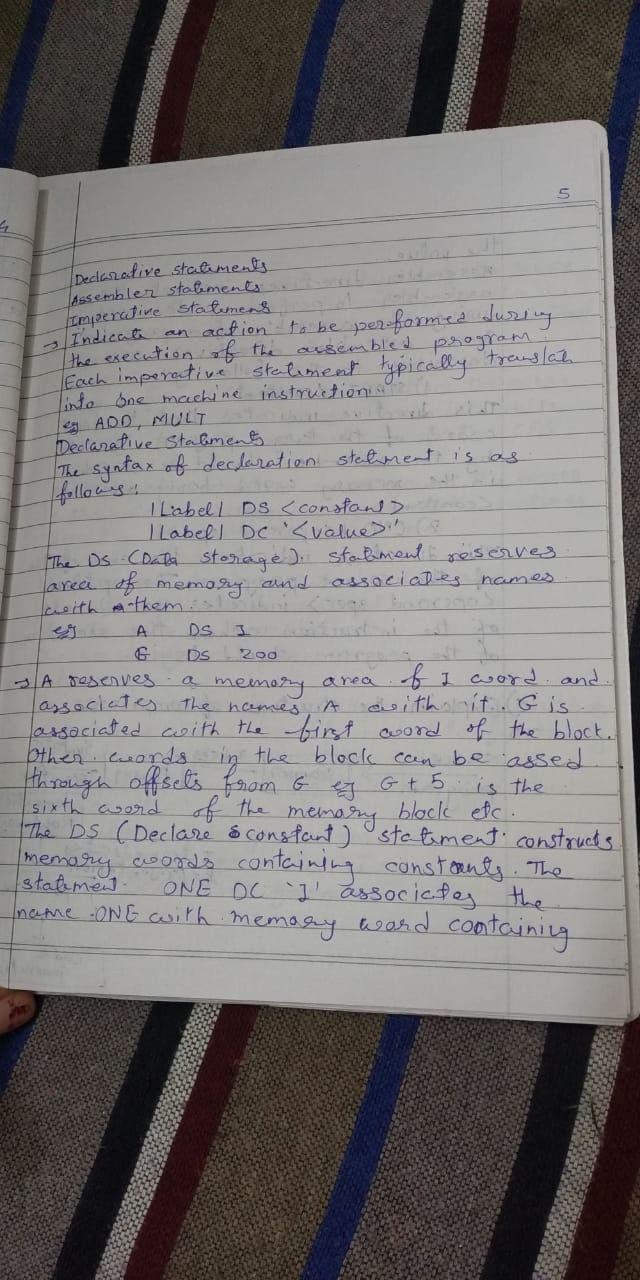 5
Declarative statements
Assembler statements
Imperative statemens
→ Indicate an action to be performed during
the execution of the assembled program.
Each imperative statement typically translate
into one machine instruction.
eg ADD, MULT
Declarative Statements
The syntax of declaration statement is as
follows:
|Label| DS <constant>
|Label| DC '<value>'
The DS (Data Storage). statement reserves
area of memory and associates names
with them.
eg A DS I
G DS 200
→ A reserves a memory area of I word and
associates the names A with it. G is
associated with the first word of the block.
Other words in the block can be assed
through offsets from G eg G + 5 is the
sixth word of the memory block etc.
The DS (Declare constant) statement constructs
memory words containing constants. The
statement ONE DC 'I' associates the
name ONE with memory word containing